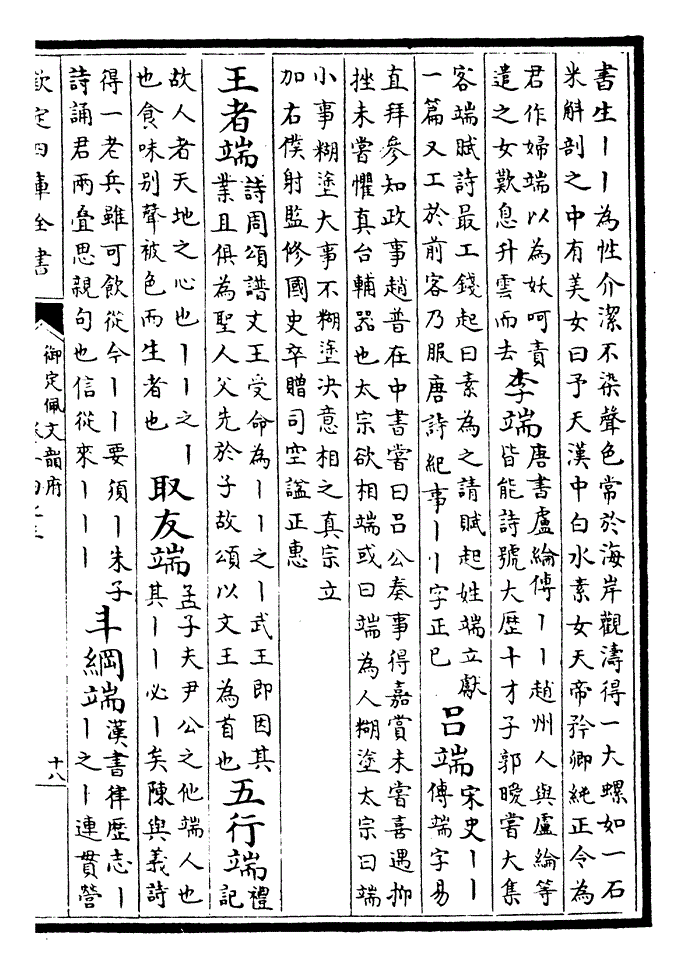 書生丨丨為性介潔不染聲色常於海岸觀濤得一大螺如一石
米斛剖之中有美女曰予天漢中白水素女天帝矜卿純正令為
君作婦端以為妖呵責
遣之女歎息升雲而去
李端
唐書盧綸傳丨丨趙州人與盧綸等
皆能詩號大歴十才子郭曖嘗大集
客端賦詩最工錢起曰素為之請賦起姓端立獻
一篇又工於前客乃服唐詩紀事丨丨字正已
呂端
宋史丨丨
傳端字易
直拜參知政事趙普在中書嘗曰呂公奏事得嘉賞未嘗喜遇抑
挫未嘗懼真台輔器也太宗欲相端或曰端為人糊塗太宗曰端
小事糊塗大事不糊塗決意相之真宗立
加右僕射監修國史卒贈司空謚正惠
王者端
詩周頌譜文王受命為丨丨之丨武王即因其
業且俱為聖人父先於子故頌以文王為首也
五行端
禮
記
故人者天地之心也丨丨之丨
也食味别聲被色而生者也
取友端
孟子夫尹公之他端人也
其丨丨必丨矣陳與義詩
得一老兵雖可飲從今丨丨要須丨朱子
詩誦君兩疊思親句也信從來丨丨丨
斗綱端
漢書律歴志丨
丨之丨連貫營
欽定四庫全書
御定佩文韻府
十八